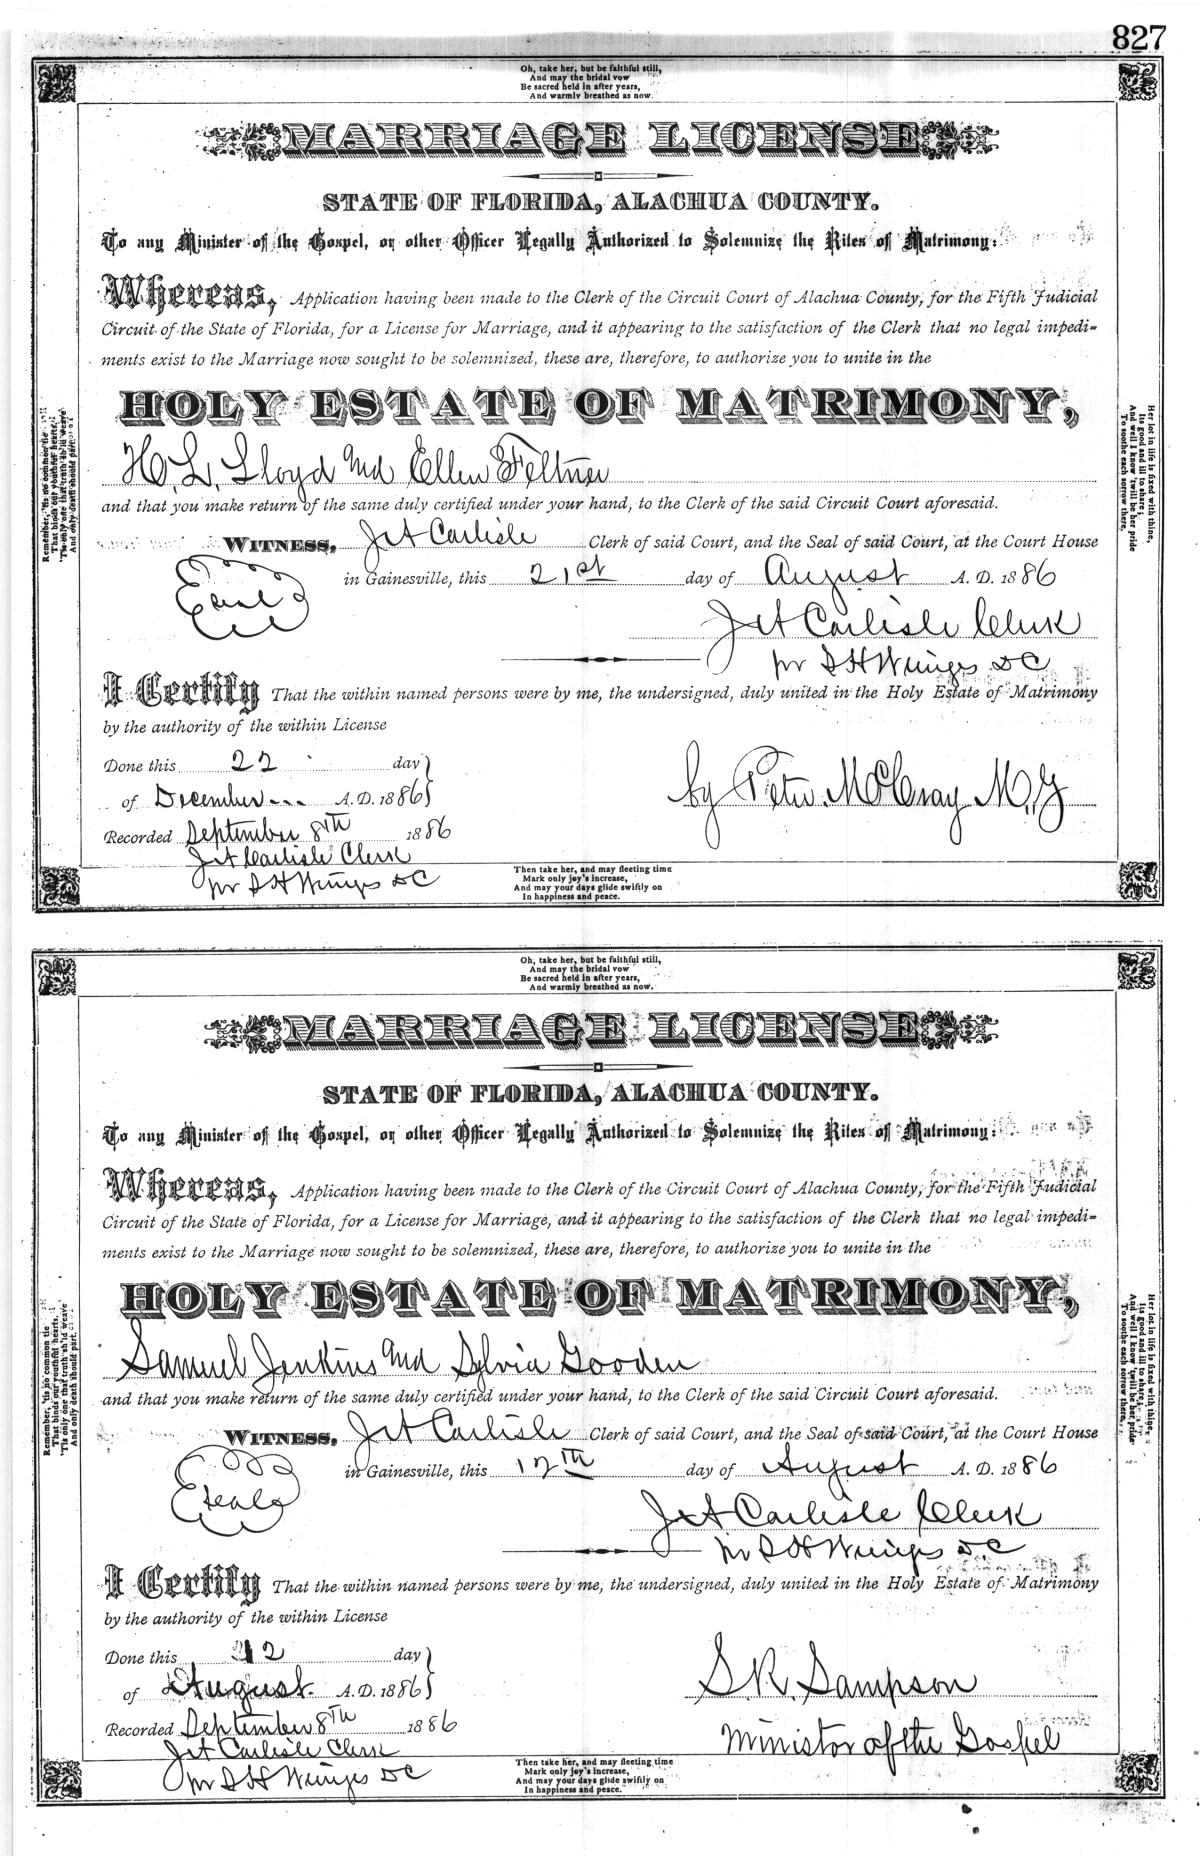 827
Oh, take her, but be faithful still,
And may the bridal vow
Be sacred held in after years,
And warmly breathed as now.
MARRIAGE LICENSE
STATE OF FLORIDA, ALACHUA COUNTY.
To any Minister of the Gospel, or other Officer Legally Authorized to Solemnize the Rites of Matrimony:
Whereas, Application having been made to the Clerk of the Circuit Court of Alachua County, for the Fifth Judicial
Circuit of the State of Florida, for a License for Marriage, and it appearing to the satisfaction of the Clerk that no legal impedi-
ments exist to the Marriage now sought to be solemnized, these are, therefore, to authorize you to unite in the
HOLY ESTATE OF MATRIMONY,
H. L. Lloyd and Ellen Feltner
and that you make return of the same duly certified under your hand, to the Clerk of the said Circuit Court aforesaid.
WITNESS, J A Carlisle Clerk of said Court, and the Seal of said Court, at the Court House
in Gainesville, this 21st day of August A. D. 1886
Seal
J A Carlisle Clerk
pr S H Wienges DC
I Certify That the within named persons were by me, the undersigned, duly united in the Holy Estate of Matrimony
by the authority of the within License
Done this 22 day
of December A. D. 1886
by Peter McCray M.G
Recorded September 8TH 1886
J A Carlisle Clerk
pr S H Wienges DC
Then take her, and may fleeting time
Mark only joy's increase,
And may your days glide swiftly on
In happiness and peace.
Remember, 'tis no common tie
That binds our youthful hearts,
'Tis only one that truth sh'ld weave
And only death should part.
Her lot in life is fixed with thine,
Its good and ill to share;
And well I know 'twill be her pride
To soothe each sorrow there.
Oh, take her, but be faithful still,
And may the bridal vow
Be sacred held in after years,
And warmly breathed as now.
MARRIAGE LICENSE
STATE OF FLORIDA, ALACHUA COUNTY.
To any Minister of the Gospel, or other Officer Legally Authorized to Solemnize the Rites of Matrimony:
Whereas, Application having been made to the Clerk of the Circuit Court of Alachua County, for the Fifth Judicial
Circuit of the State of Florida, for a License for Marriage, and it appearing to the satisfaction of the Clerk that no legal impedi-
ments exist to the Marriage now sought to be solemnized, these are, therefore, to authorize you to unite in the
HOLY ESTATE OF MATRIMONY,
Samuel Jenkins and Sylvia Gooden
and that you make return of the same duly certified under your hand, to the Clerk of the said Circuit Court aforesaid.
WITNESS, J A Carlisle Clerk of said Court, and the Seal of said Court, at the Court House
in Gainesville, this 12TH day of August A. D. 1886
Seal
J A Carlisle Clerk
pr S H Wienges DC
I Certify That the within named persons were by me, the undersigned, duly united in the Holy Estate of Matrimony
by the authority of the within License
Done this 12 day
of August A. D. 1886
S. R. Sampson
Recorded September 8TH 1886
Ministor of the Gospel
J A Carlisle Clerk
pr S H Wienges DC
Then take her, and may fleeting time
Mark only joy's increase,
And may your days glide swiftly on
In happiness and peace.
Remember, 'tis no common tie
That binds our youthful hearts,
'Tis only one that truth sh'ld weave
And only death should part.
Her lot in life is fixed with thine,
Its good and ill to share;
And well I know 'twill be her pride
To soothe each sorrow there.